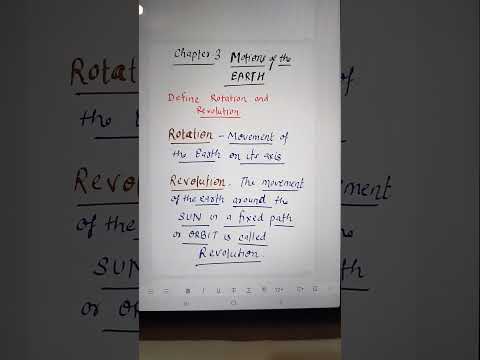 Chapter:3 Motions of the
EARTH
Define Rotation and
Revolution
Rotation - Movement of
the Earth on its axis
Revolution. The movement
of the earth around the
SUN in a fixed path
or ORBIT is called
Revolution.